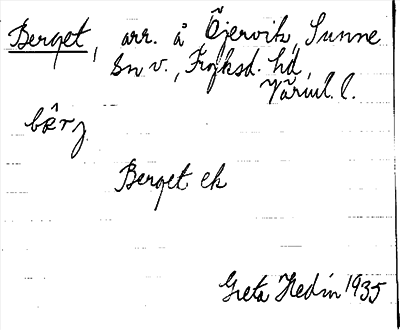 Berget, arr. å Öjervik, Sunne
Sn v., Fryksd. hd,
Värml. l.
bærj
Berget ek
Greta Hedin 1935